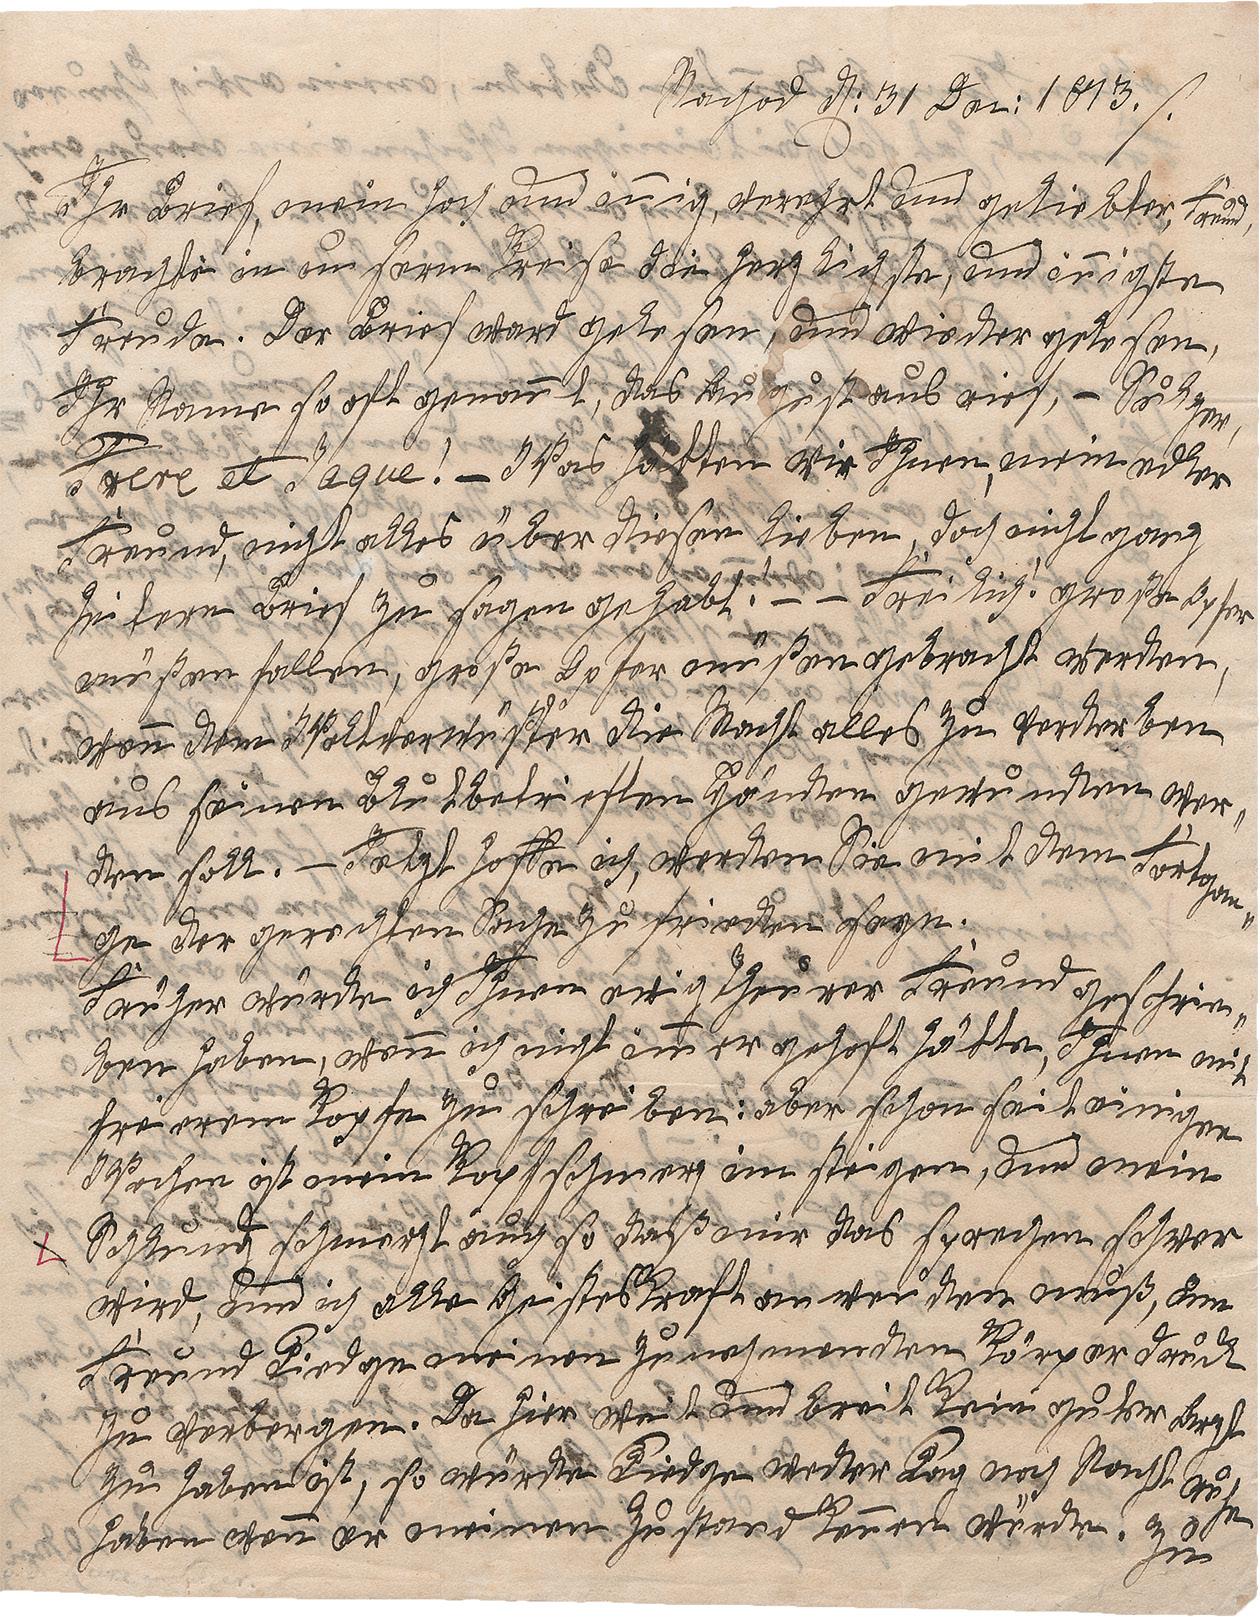 Nachod d: 31 Dec: 1813. /.
Ihr Brief, mein hoch und iñig, verehrt und geliebter, Freund,
brachte in unserm Kreise die herzlichste, und iñigste
Freude. Der Brief ward gelesen, und wieder gelesen,
Ihr Name so oft genañt, das August aus rief, –
Frere et Jaque! – Was hätten wir Ihnen, mein edler
Freund, nicht alles über diesen lieben, doch nicht ganz
heitern Brief zu sagen gehabt! – – Freilich! große Opfer
müßen fallen, große Opfer müßen gebracht werden,
weñ dem Weltverwüster die Macht alles zu verderben
aus seinen blutbetrieften Händen gewunden wer„
den soll. – Jetzt hoffe ich, werden Sie mit dem Fortgan„
ge der gerechten Sache zu frieden seyn.
Früher würde ich Ihnen ewig theurer Freund geschrie„
ben haben, weñ ich nicht im̃er gehoft hätte, Ihnen mit
freierem Kopfe zu schreiben: aber schon seit einigen
Wochen ist mein Kopfschmerz im steigen, und mein
Schlund schmerzt auch so daß mir das sprechen schwer
wird, und ich alle Geisteskraft anwenden muß, um
Freund Tiedge meinen zunehmenden Körper druck
zu verbergen. Da hier weit und breit kein guter Arzt
zu haben ist, so würde Tiedge weder Tag noch Nacht Ruhe
haben weñ er meinen Zustand keñen würde. Zu